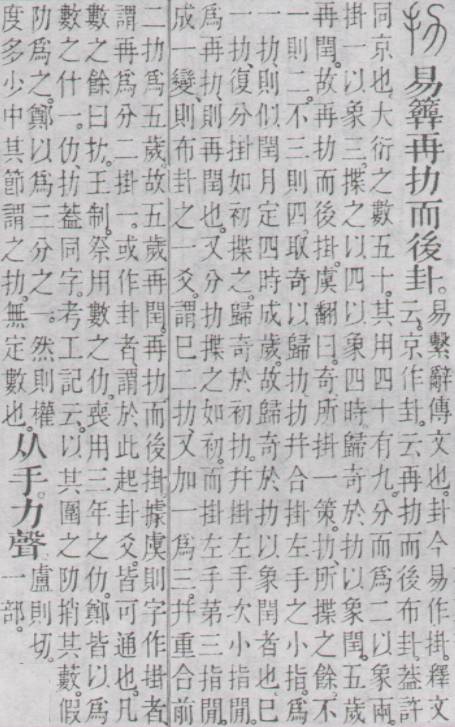 扐 易筮再扐而後卦。
易繫辭傳文也。卦今易作掛。釋文
云。京作卦。云再扐而後布卦。葢許
同京也。大衍之數五十。其用四十有九。分而爲二以象兩。
掛一以象三。揲之以四以象四時。歸奇於扐以象閏。五歲
再閏。故再扐而後掛。虞翻曰。奇所掛一策。扐所揲之餘。不
一則二。不三則四。取奇以歸扐。扐幷合掛左手之小指。爲
一扐。則似閏月定四時成歲。故歸奇於扐以象閏者也。巳
一扐。復分掛如初揲之。歸奇於初扐。幷掛左手次小指閒。
爲再扐。則再閏也。又分扐揲之如初。而掛左手第三指閒。
成一變。則布卦之一爻。謂巳二扐。又加一爲三。幷重合前
二扐爲五歲。故五歲再閏。再扐而後掛。據虞則字作掛者。
謂再爲分二掛一。或作卦者。謂於此起卦爻。皆可通也。凡
數之餘曰扐。王制。祭用數之仂。喪用三年之仂。鄭皆以爲
數之什一。仂扐葢同字。考工記云。以其圍之阞捎其藪。假
阞爲之。鄭以爲三分之一。然則權
度多少中其節謂之扐。無定數也。
从手。力聲。
盧則切。
一部。